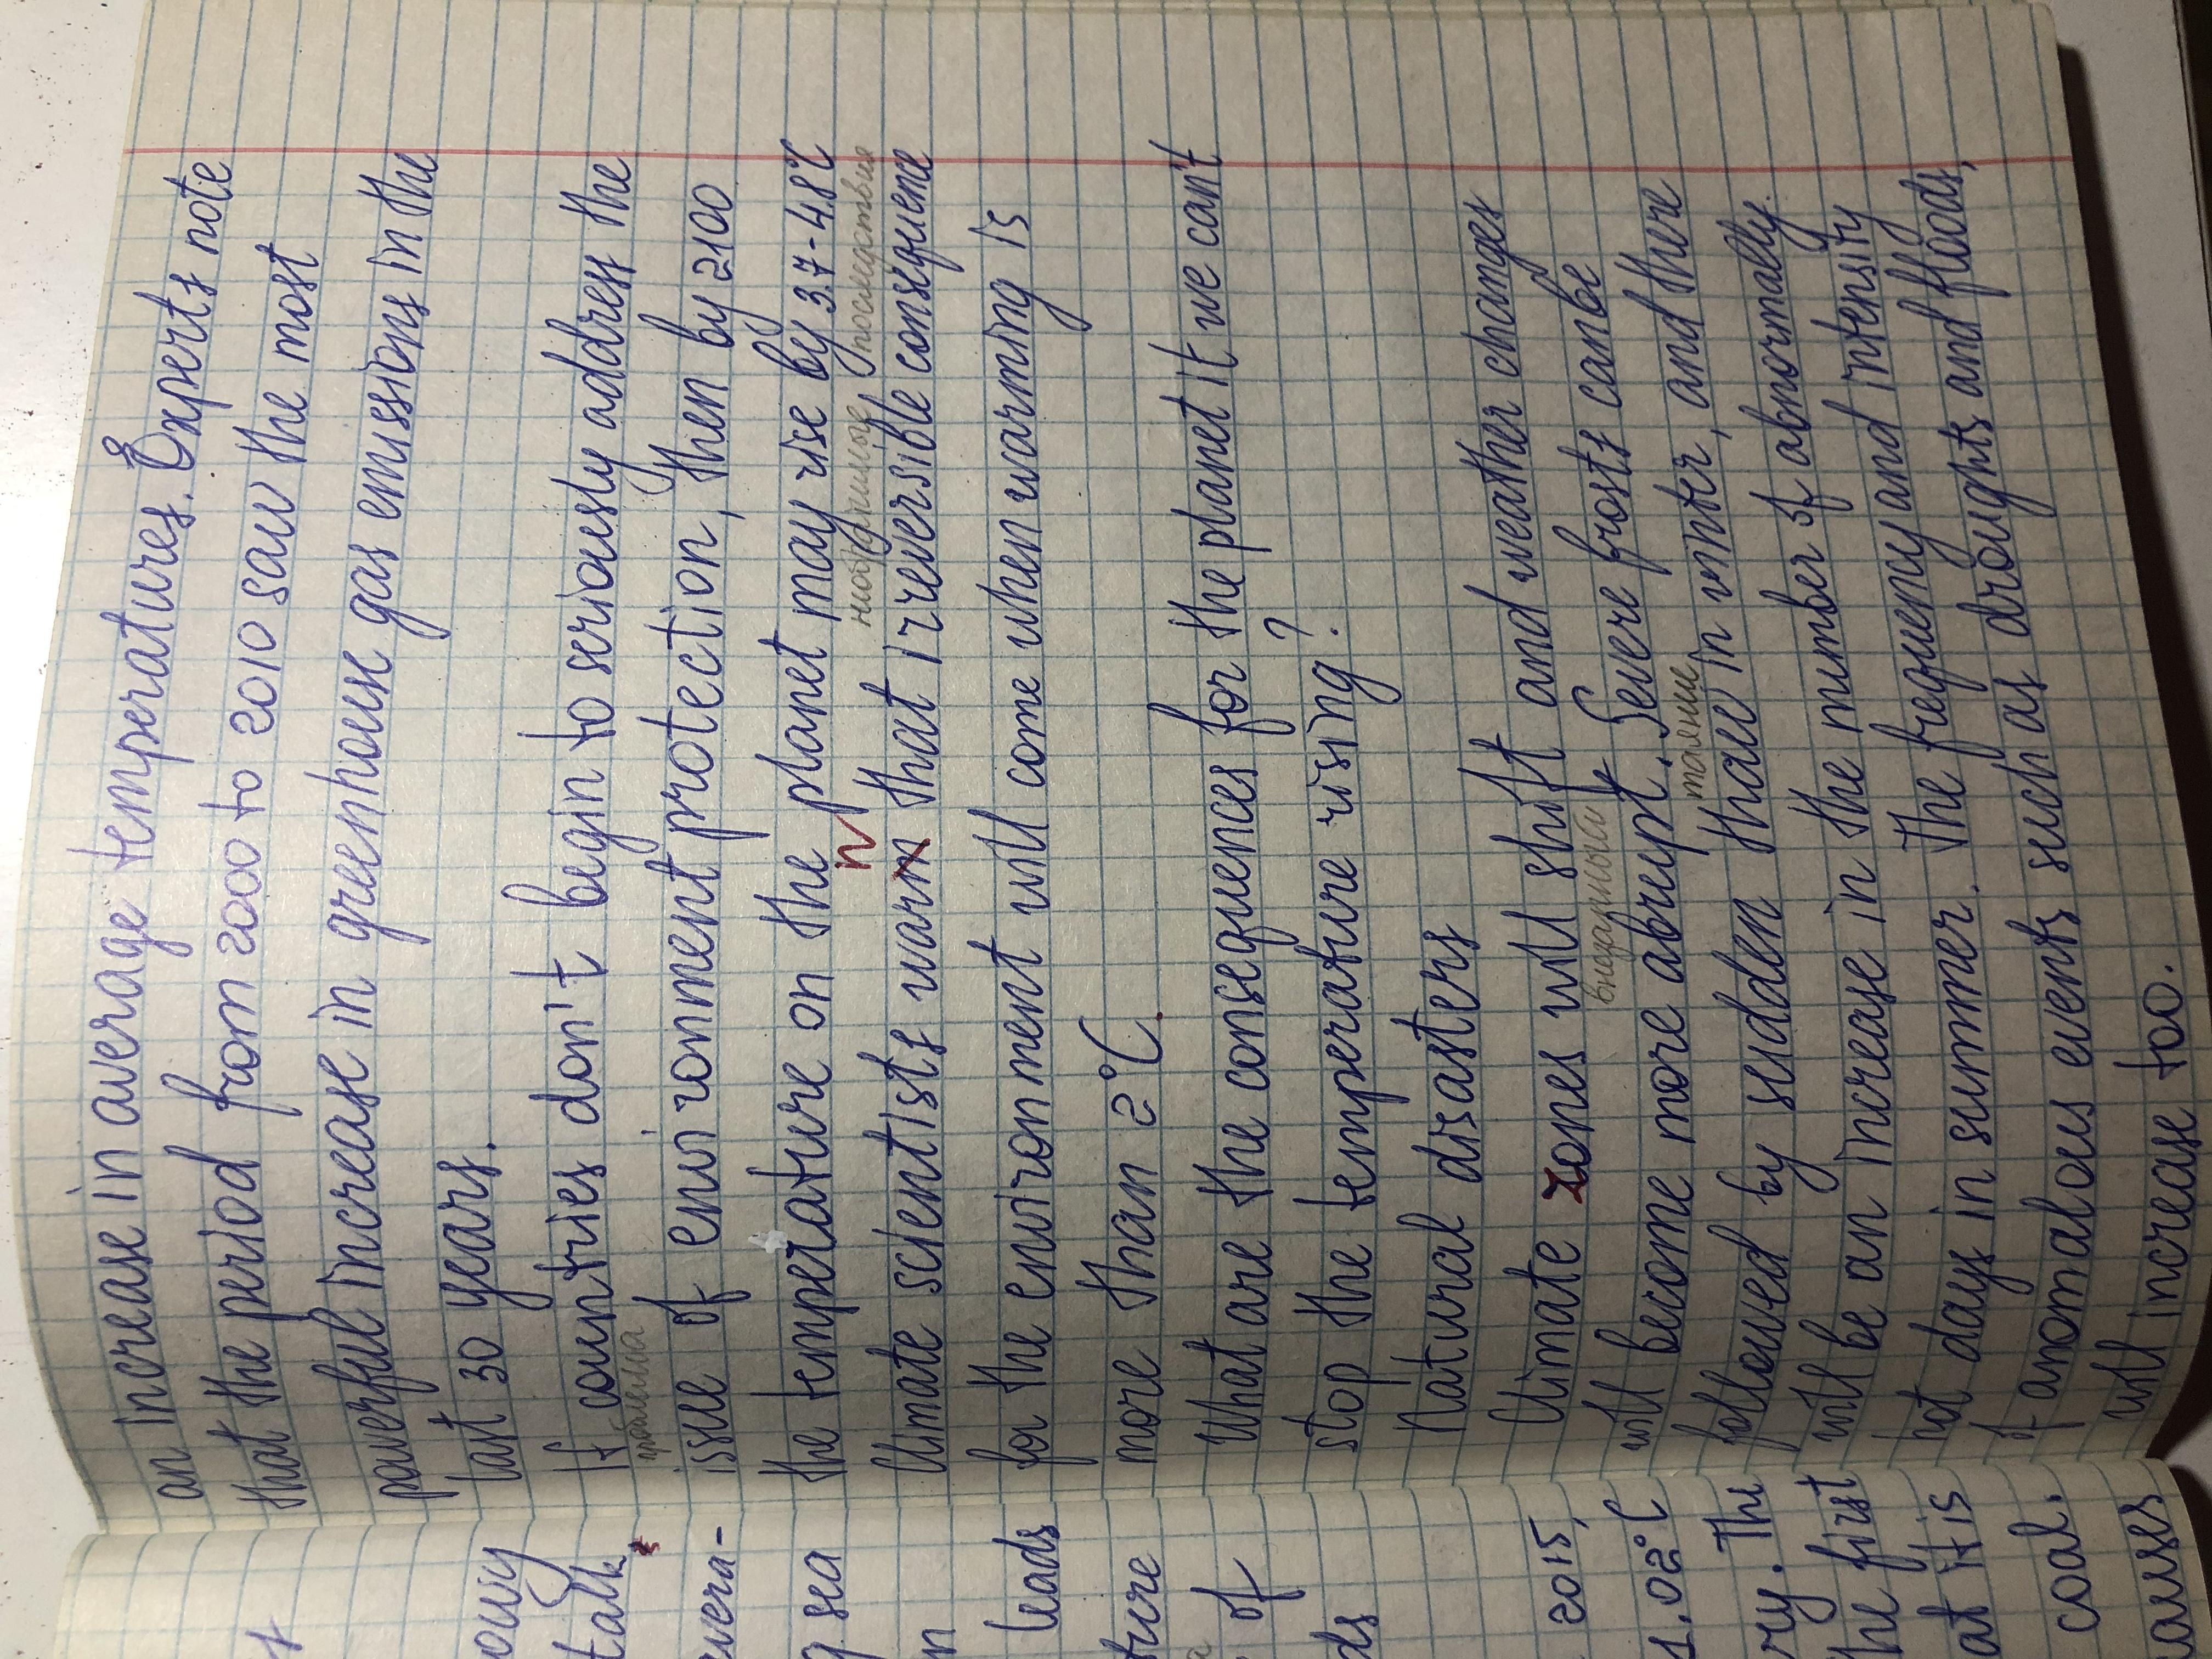 an increase in average temperatures. Experts note
that the period from 2000 to 2010 saw the most
powerful increase in greenhouse gas emissions in the
last 30 years.
If countries don't begin to seriously address the
проблема
issue of environment protection, then by 2100
the temperature on the planet may rise by 3.7-4.8°C
n необратимые последствия
Climate scientists warn that irreversible consequence
for the environment will come when warming is
more than 2°C.
What are the consequences for the planet if we can't
stop the temperature rising?
Natural disasters
Climate zones will shift and weather changes
внезапный
will become more abrupt. Severe frosts can be
таяние
followed by sudden thaw in winter, and there
will be an increase in the number of abnormally
hot days in summer. The frequency and intensity
of anomalous events such as droughts and floods,
will increase too.
talk
sea
leads
of
2015,
1.02°C
The
first
it is
coal.